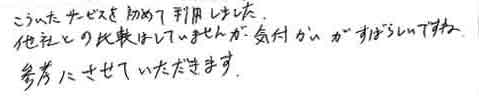 こういたサービスを初めて利用しました.
他社との比較はしていませんが.気付かいがすばらしいですね.
参考にさせていただきます.